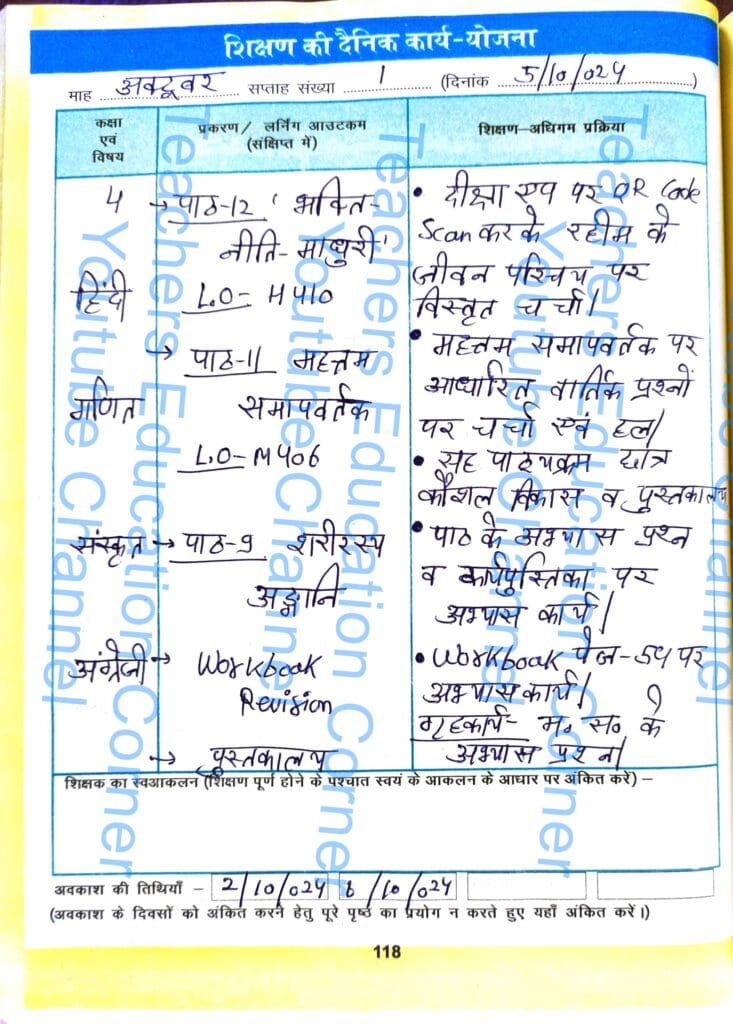 शिक्षण की दैनिक कार्य-योजना
माह अक्टूबर सप्ताह संख्या 1 (दिनांक 5/10/024)
कक्षा एवं विषय
प्रकरण / लर्निंग आउटकम (संक्षिप्त में)
शिक्षण-अधिगम प्रक्रिया
4 → पाठ-12 'भक्ति-
नीति-माधुरी'
हिंदी L.O- H410
→ पाठ-11 महत्तम
गणित समापवर्तक
L.O- M406
संस्कृत → पाठ-9 शरीरस्य
अङ्गानि
अंग्रेजी → Workbook
Revision
→ पुस्तकालय
• दीक्षा एप पर QR Code
Scan करके रहीम के
जीवन परिचय पर
विस्तृत चर्चा।
• महत्तम समापवर्तक पर
आधारित वार्तिक प्रश्नों
पर चर्चा एवं हल।
• सह पाठ्यक्रम छात्र
कौशल विकास व पुस्तकालय
• पाठ के अभ्यास प्रश्न
व कार्यपुस्तिका पर
अभ्यास कार्य।
• Workbook पेज-54 पर
अभ्यास कार्य।
गृहकार्य- म. स. के
अभ्यास प्रश्न।
शिक्षक का स्वआकलन (शिक्षण पूर्ण होने के पश्चात स्वयं के आकलन के आधार पर अंकित करें) –
अवकाश की तिथियाँ – 2/10/024 6/10/024
(अवकाश के दिवसों को अंकित करने हेतु पूरे पृष्ठ का प्रयोग न करते हुए यहाँ अंकित करें।)
118
Teachers Education Corner
Youtube Channel
Teachers Education Corner
Youtube Channel
Teachers Education Corner
Youtube Channel